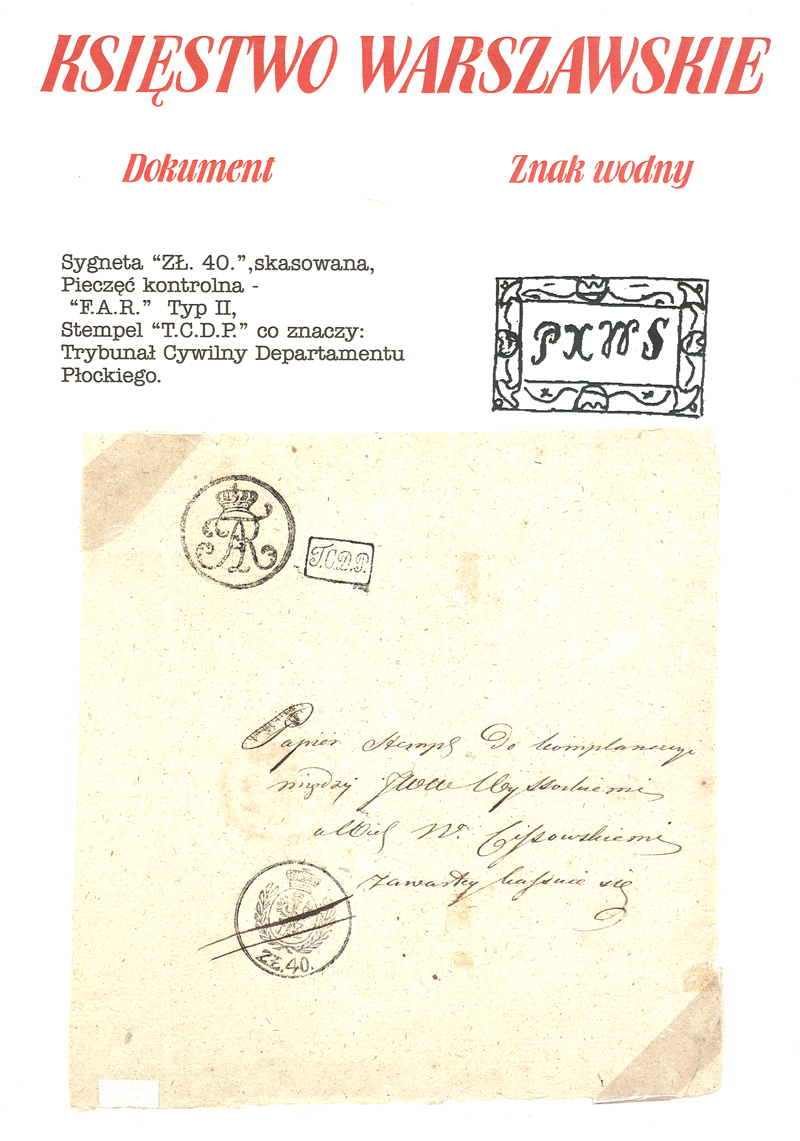 KSIĘSTWO WARSZAWSKIE
Dokument
Znak wodny
Sygneta “ZŁ. 40.”,skasowana,
Pieczęć kontrolna -
“F.A.R.” Typ II,
Stempel “T.C.D.P.” co znaczy:
Trybunał Cywilny Departamentu
Płockiego.
PXWS
FAR
T.C.D.P.
Papier Stempl do komplanacyi
między JWW Wyssockiemi
a W. Cissowskiemi
zawartey kassuie się
ZŁ.40.